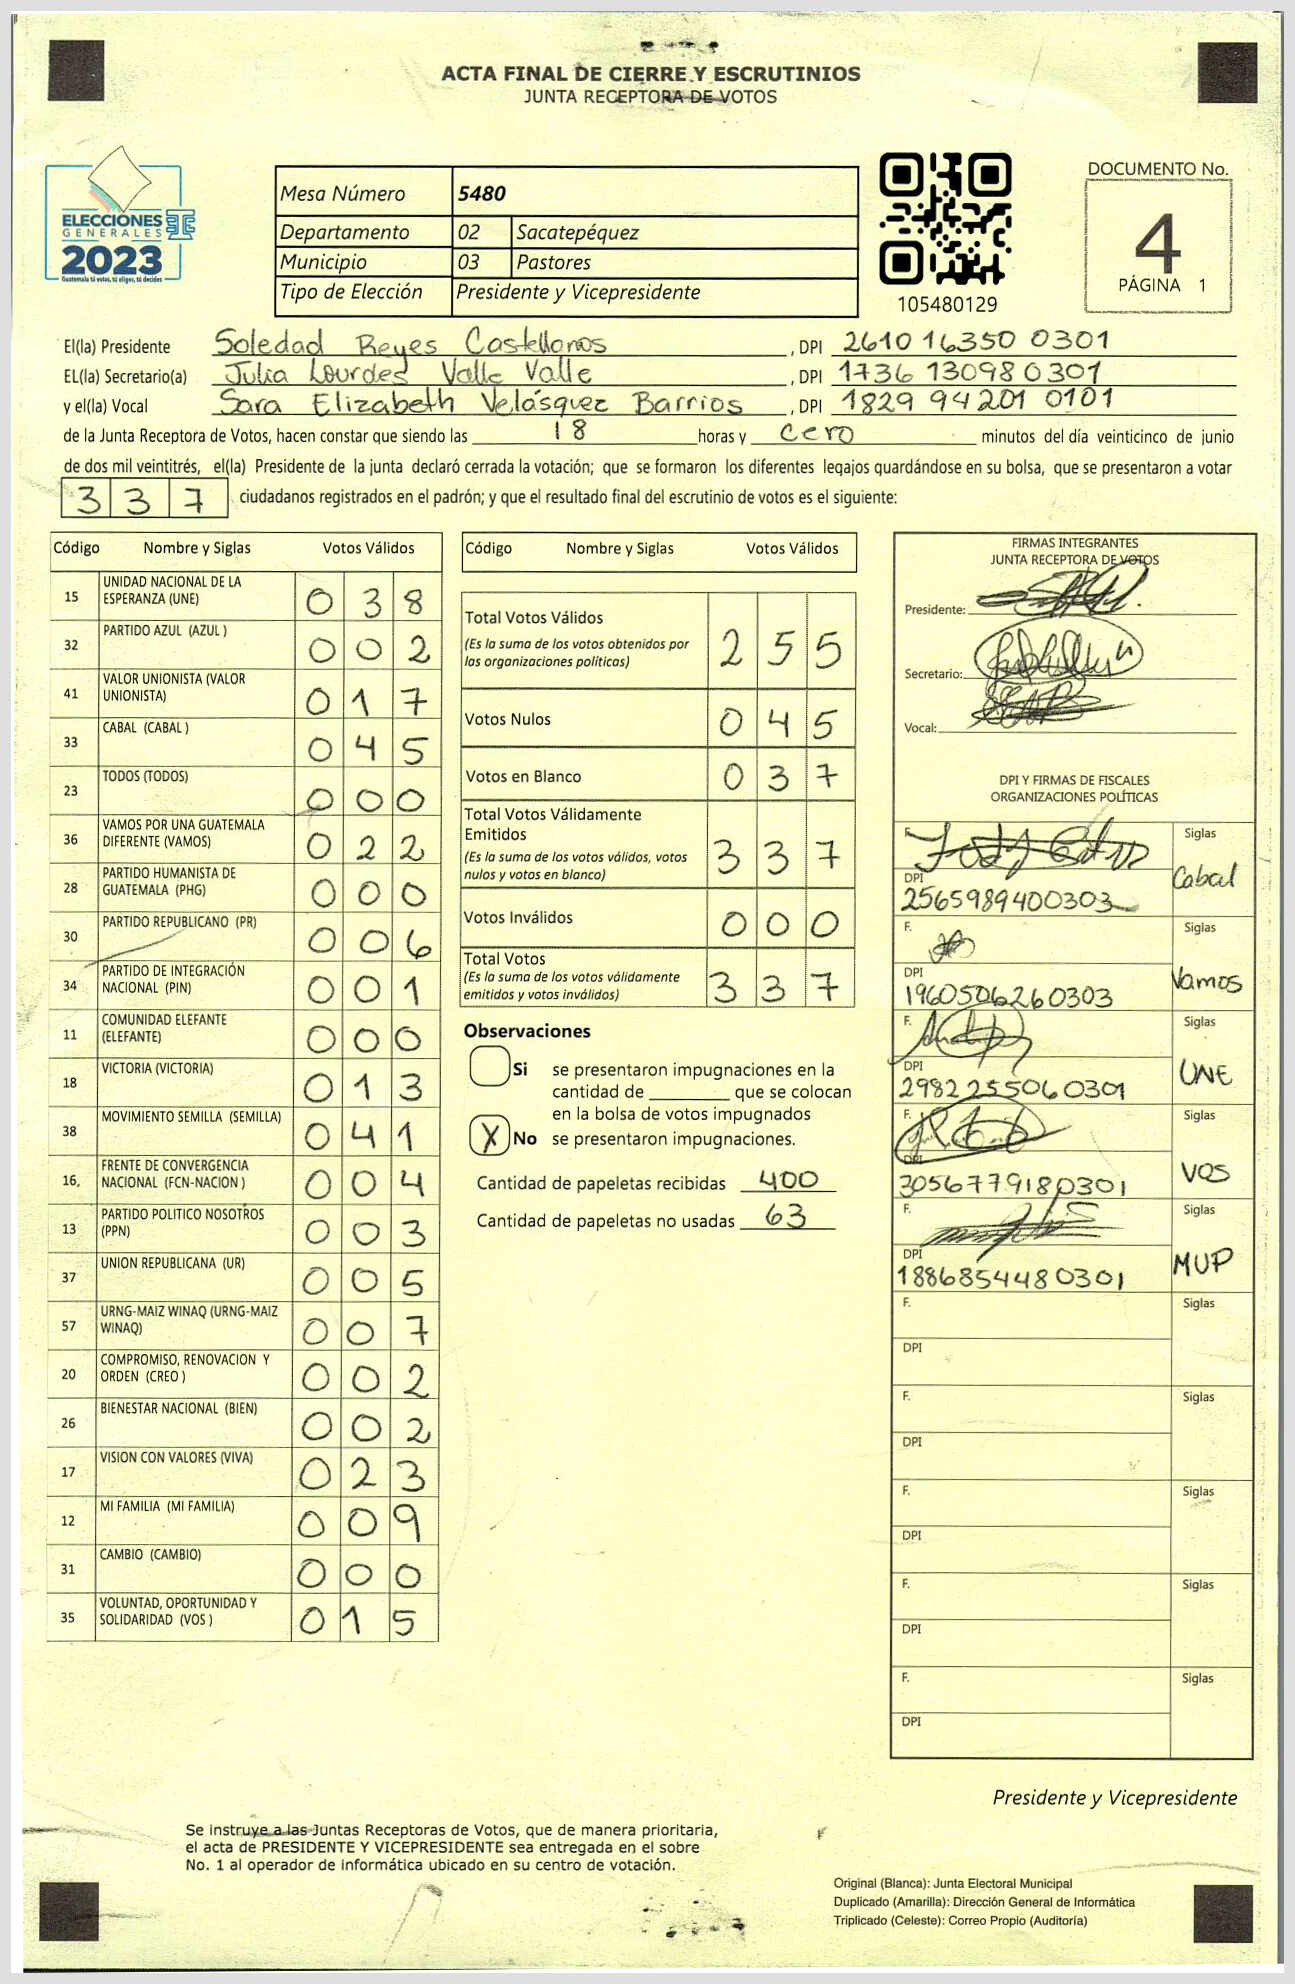 ACTA FINAL DE CIERRE Y ESCRUTINIOS
JUNTA RECEPTORA DE VOTOS
ELECCIONES
GENERALES
2023
Guatemala tú votas, tú eliges, tú decides
Mesa Número 5480
Departamento 02 Sacatepéquez
Municipio 03 Pastores
Tipo de Elección Presidente y Vicepresidente
105480129
DOCUMENTO No.
4
PÁGINA 1
El(la) Presidente Soledad Reyes Castellanos, DPI 2610 16350 0301
EL(la) Secretario(a) Julia Lourdes Valle Valle, DPI 1736 13098 0301
y el(la) Vocal Sara Elizabeth Velásquez Barrios, DPI 1829 94201 0101
de la Junta Receptora de Votos, hacen constar que siendo las 18 horas y cero minutos del día veinticinco de junio
de dos mil veintitrés, el(la) Presidente de la junta declaró cerrada la votación; que se formaron los diferentes legajos guardándose en su bolsa, que se presentaron a votar
337 ciudadanos registrados en el padrón; y que el resultado final del escrutinio de votos es el siguiente:
Código Nombre y Siglas Votos Válidos
15 UNIDAD NACIONAL DE LA ESPERANZA (UNE) 038
32 PARTIDO AZUL (AZUL ) 002
41 VALOR UNIONISTA (VALOR UNIONISTA) 017
33 CABAL (CABAL ) 045
23 TODOS (TODOS) 000
36 VAMOS POR UNA GUATEMALA DIFERENTE (VAMOS) 022
28 PARTIDO HUMANISTA DE GUATEMALA (PHG) 000
30 PARTIDO REPUBLICANO (PR) 006
34 PARTIDO DE INTEGRACIÓN NACIONAL (PIN) 001
11 COMUNIDAD ELEFANTE (ELEFANTE) 000
18 VICTORIA (VICTORIA) 013
38 MOVIMIENTO SEMILLA (SEMILLA) 041
16, FRENTE DE CONVERGENCIA NACIONAL (FCN-NACION ) 004
13 PARTIDO POLITICO NOSOTROS (PPN) 003
37 UNION REPUBLICANA (UR) 005
57 URNG-MAIZ WINAQ (URNG-MAIZ WINAQ) 007
20 COMPROMISO, RENOVACION Y ORDEN (CREO ) 002
26 BIENESTAR NACIONAL (BIEN) 002
17 VISION CON VALORES (VIVA) 023
12 MI FAMILIA (MI FAMILIA) 009
31 CAMBIO (CAMBIO) 000
35 VOLUNTAD, OPORTUNIDAD Y SOLIDARIDAD (VOS ) 015
Código Nombre y Siglas Votos Válidos
Total Votos Válidos 255
(Es la suma de los votos obtenidos por
las organizaciones políticas)
Votos Nulos 045
Votos en Blanco 037
Total Votos Válidamente
Emitidos 337
(Es la suma de los votos válidos, votos
nulos y votos en blanco)
Votos Inválidos 000
Total Votos 337
(Es la suma de los votos válidamente
emitidos y votos inválidos)
Observaciones
Si se presentaron impugnaciones en la
cantidad de ________ que se colocan
en la bolsa de votos impugnados
X No se presentaron impugnaciones.
Cantidad de papeletas recibidas 400
Cantidad de papeletas no usadas 63
FIRMAS INTEGRANTES
JUNTA RECEPTORA DE VOTOS
Presidente:
Secretario:
Vocal:
DPI Y FIRMAS DE FISCALES
ORGANIZACIONES POLÍTICAS
F. Siglas
Cabal
DPI
2565989400303
F. Siglas
Vamos
DPI
1960506260303
F. Siglas
UNE
DPI
2982255060301
F. Siglas
VOS
DPI
3056779180301
F. Siglas
MUP
DPI
1886854480301
F. Siglas
DPI
F. Siglas
DPI
F. Siglas
DPI
F. Siglas
DPI
F. Siglas
DPI
Presidente y Vicepresidente
Se instruye a las Juntas Receptoras de Votos, que de manera prioritaria,
el acta de PRESIDENTE Y VICEPRESIDENTE sea entregada en el sobre
No. 1 al operador de informática ubicado en su centro de votación.
Original (Blanca): Junta Electoral Municipal
Duplicado (Amarilla): Dirección General de Informática
Triplicado (Celeste): Correo Propio (Auditoría)